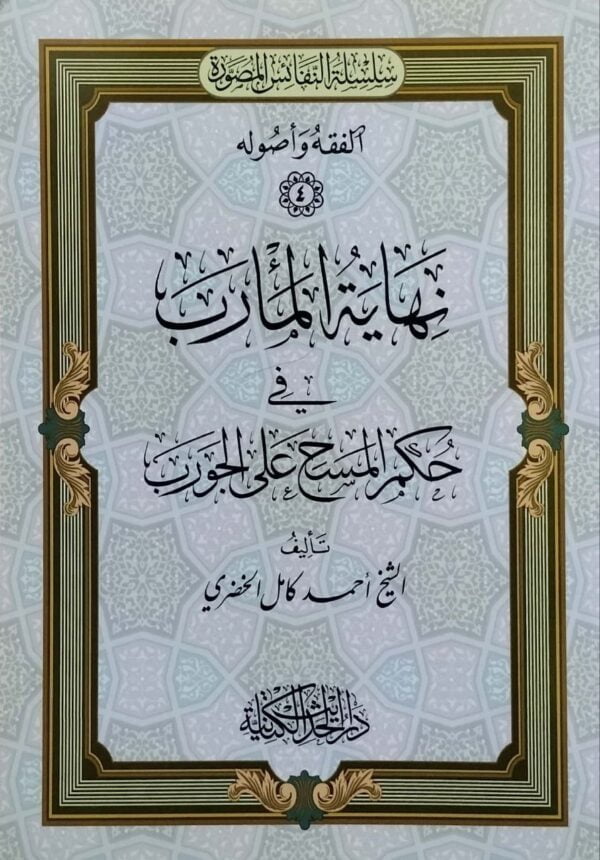 سلسلة النفائس المصورة
الفقهُ وأصوله
٤
نهايةُ المأرب
في
حُكم المسح على الجورب
تأليفُ
الشيخ أحمد كامل الخضري
دار الحديث الكتانية